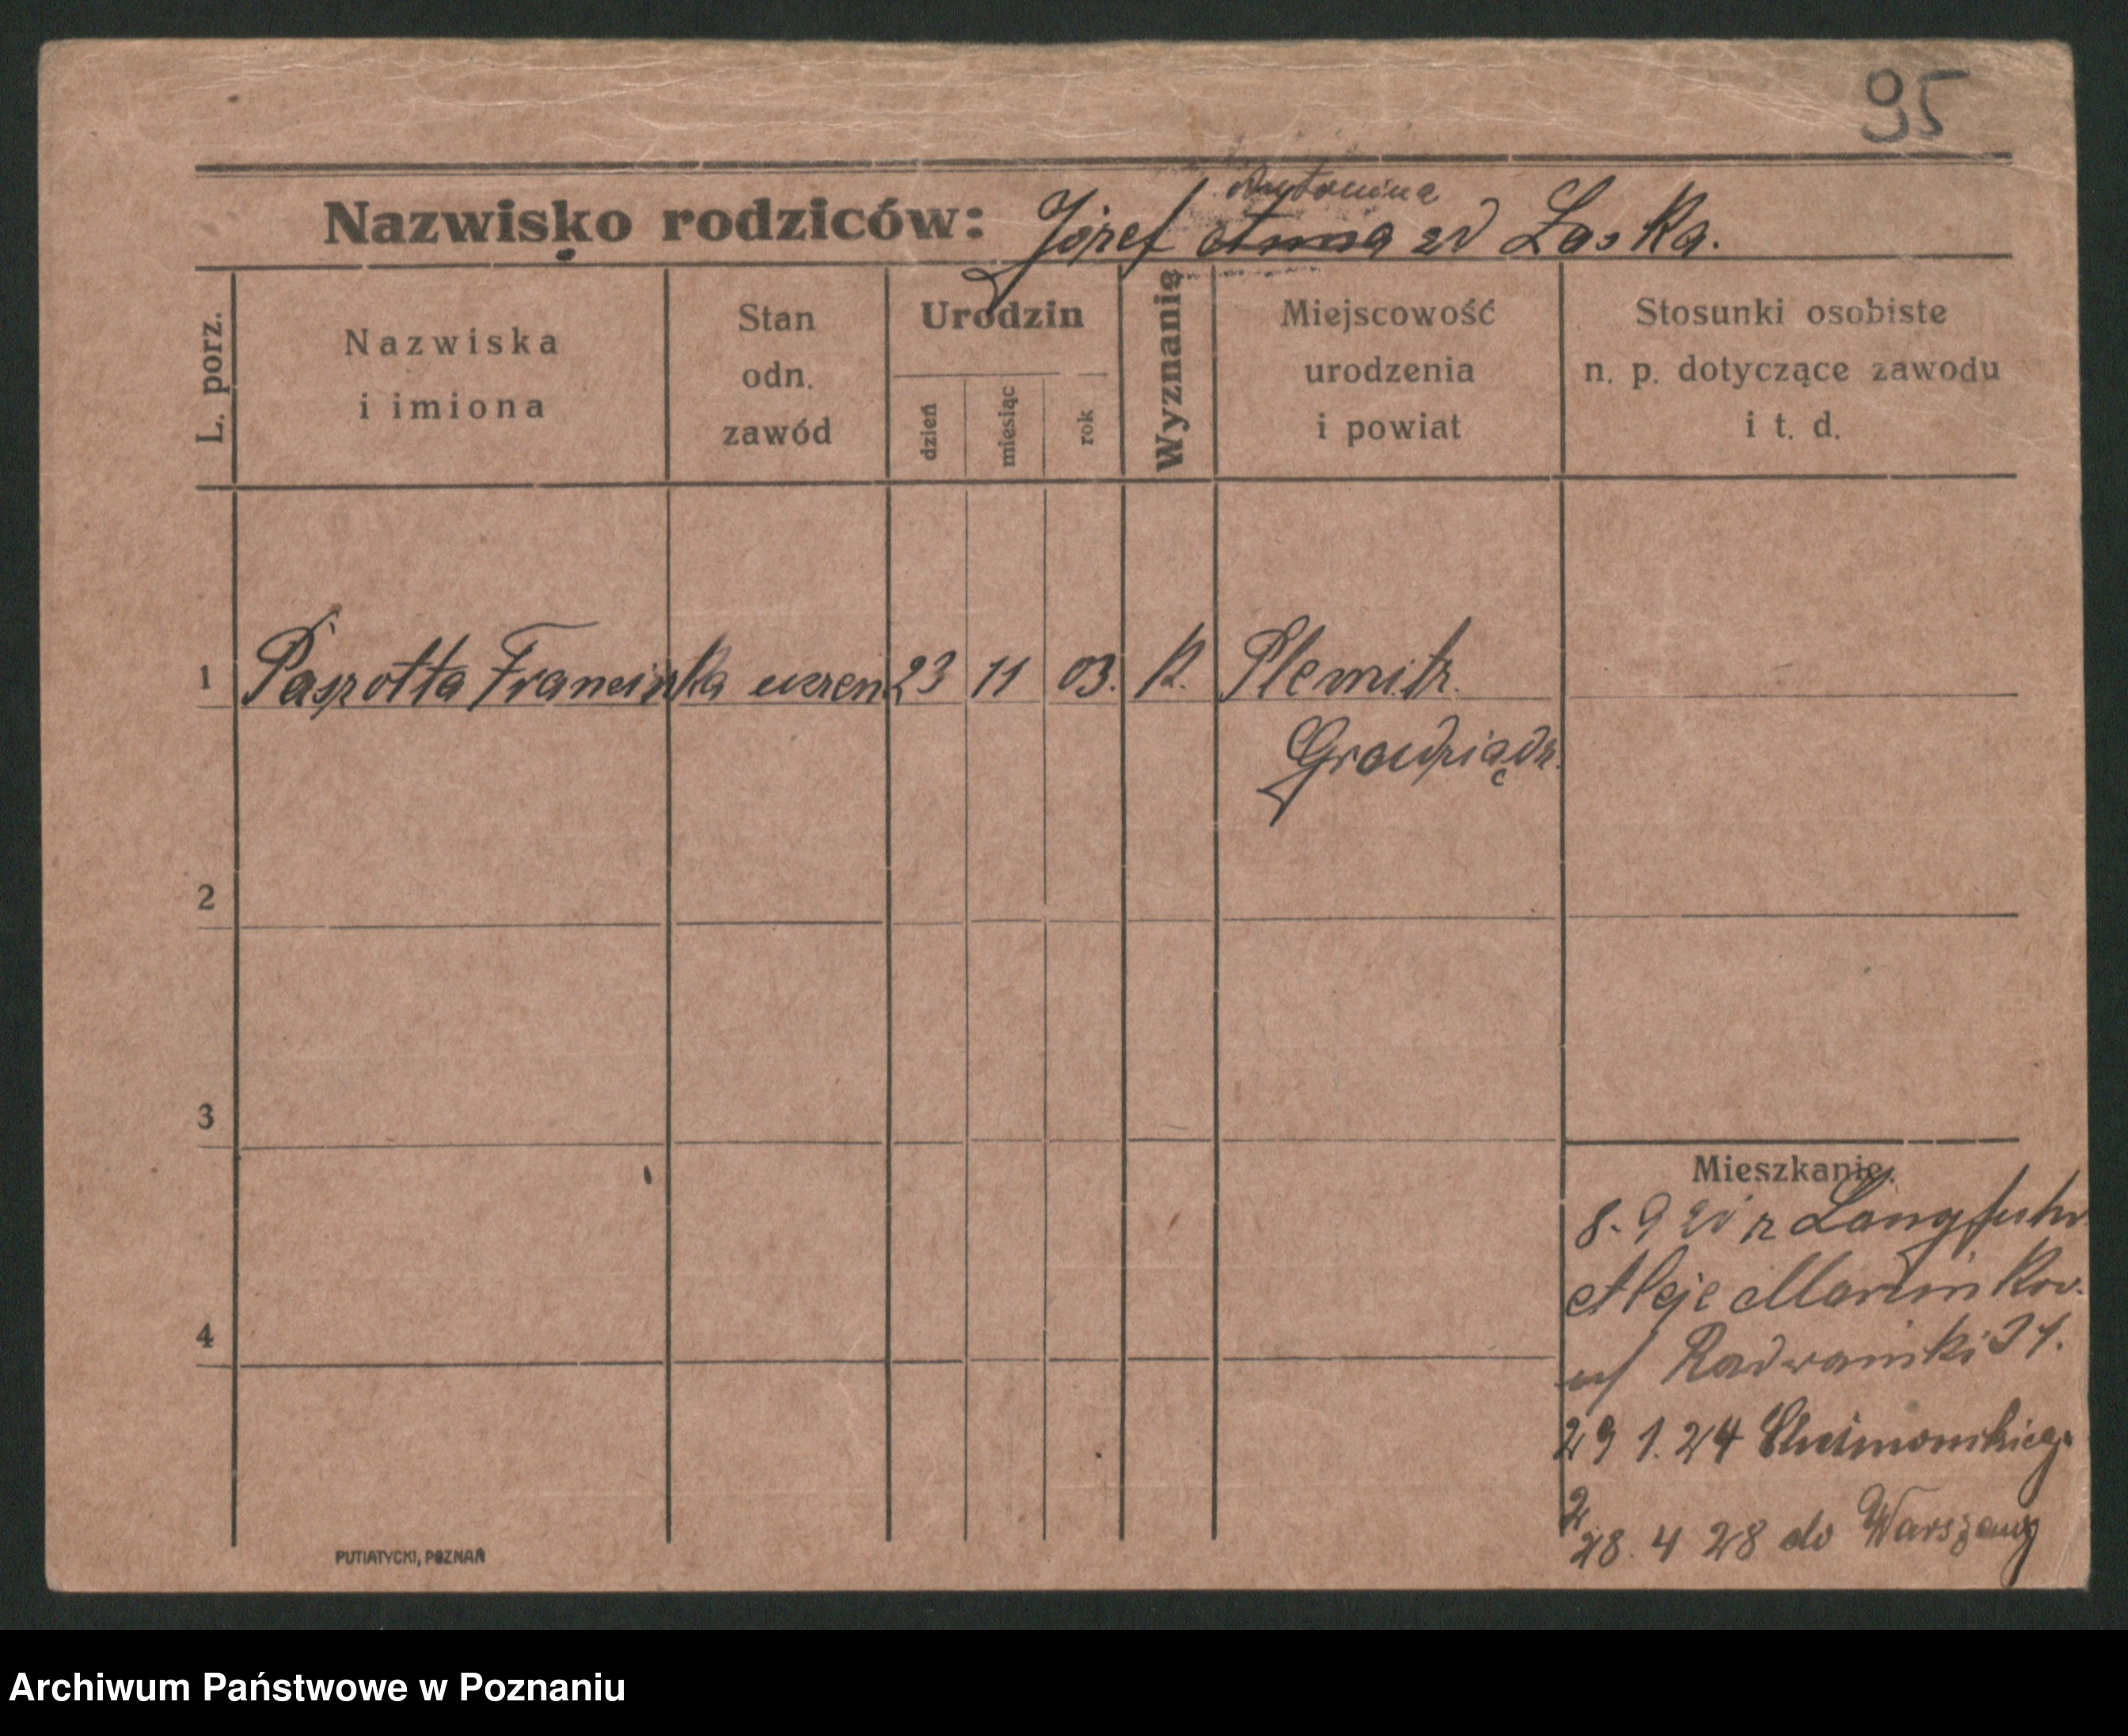 95
Antonina
Nazwisko rodziców: Józef Anna zd Laska.
L. porz.
Nazwiska i imiona
Stan odn. zawód
Urodzin
dzień
miesiąc
rok
Wyznanie
Miejscowość urodzenia i powiat
Stosunki osobiste n. p. dotyczące zawodu i t. d.
1 Paszotta Franciszka uczen. 23 11 03. K. Plemitz.
Grudziądz.
2
3
Mieszkanie.
8. 9 21 z Langfuhr
Aleje Marcinkow.
4
u/ Radwański 21.
29 1. 24
2
28. 4 28 do Warszawy
PUTIATYCKI, POZNAŃ
Archiwum Państwowe w Poznaniu